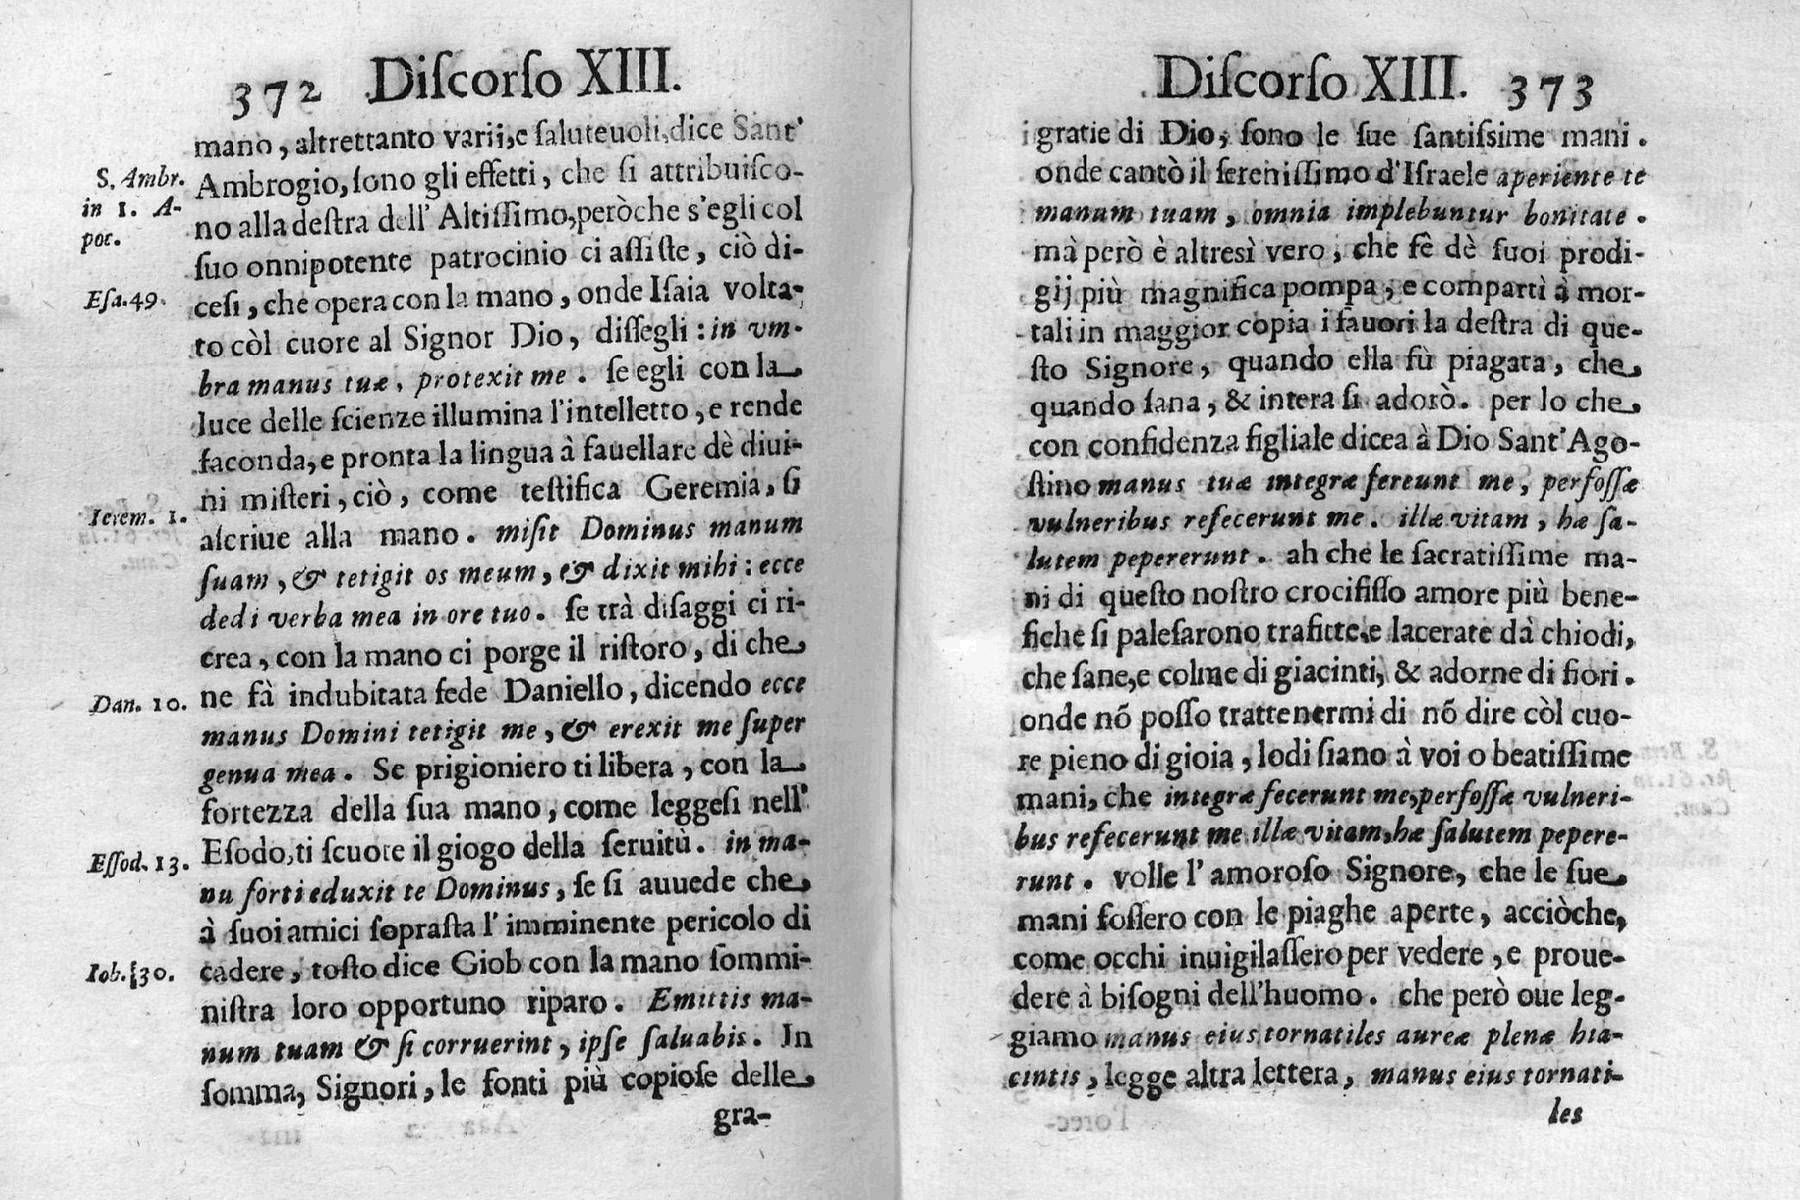 372 Diſcorſo XIII.
mano, altrettanto varii, e ſaluteuoli, dice Sant'
S. Ambr. in 1. Apoc.
Ambrogio, ſono gli effetti, che ſi attribuiſco-
no alla deſtra dell' Altiſſimo, peròche s'egli col
ſuo onnipotente patrocinio ci aſſiſte, ciò di-
Eſa. 49.
ceſi, che opera con la mano, onde Iſaia volta-
to còl cuore al Signor Dio, diſſegli: in vm-
bra manus tuæ, protexit me. ſe egli con la
luce delle ſcienze illumina l'intelletto, e rende
faconda, e pronta la lingua à fauellare dè diui-
ni miſteri, ciò, come teſtifica Geremia, ſi
Ierem. 1.
aſcriue alla mano. miſit Dominus manum
ſuam, & tetigit os meum, & dixit mihi: ecce
dedi verba mea in ore tuo. ſe trà diſaggi ci ri-
crea, con la mano ci porge il riſtoro, di che
Dan. 10.
ne fà indubitata fede Daniello, dicendo ecce
manus Domini tetigit me, & erexit me ſuper
genua mea. Se prigioniero ti libera, con la
fortezza della ſua mano, come leggeſi nell'
Eſſod. 13.
Eſodo, ti ſcuote il giogo della ſeruitù. in ma-
nu forti eduxit te Dominus, ſe ſi auuede che
à ſuoi amici sopraſta l' imminente pericolo di
Iob. 30.
cadere, toſto dice Giob con la mano ſommi-
niſtra loro opportuno riparo. Emittis ma-
num tuam & ſi corruerint, ipſe ſaluabis. In
ſomma, Signori, le fonti più copioſe delle
gra-
Diſcorſo XIII. 373
gratie di Dio, ſono le ſue ſantiſſime mani.
onde cantò il ſereniſſimo d'Iſraele aperiente te
manum tuam, omnia implebuntur bonitate.
mà però è altresì vero, che fè dè ſuoi prodi-
gij più magnifica pompa, e compartì à mor-
tali in maggior copia i fauori la deſtra di que-
ſto Signore, quando ella fù piagata, che
quando ſana, & intera ſi adorò. per lo che
con confidenza figliale dicea à Dio Sant'Ago-
ſtino manus tuæ integræ fereunt me, perfoſſæ
vulneribus refecerunt me. illæ vitam, hæ ſa-
lutem pepererunt. ah che le ſacratiſſime ma-
ni di queſto noſtro crocifiſſo amore più bene-
fiche ſi paleſarono trafitte, e lacerate dà chiodi,
che ſane, e colme di giacinti, & adorne di fiori.
onde nõ poſſo trattenermi di nõ dire còl cuo-
re pieno di gioia, lodi ſiano à voi o beatiſſime
mani, che integræ fecerunt me, perfoſſæ vulneri-
bus refecerunt me illæ vitam, hæ ſalutem pepere-
runt. volle l' amoroſo Signore, che le ſue
mani foſſero con le piaghe aperte, acciòche,
come occhi inuigilaſſero per vedere, e proue-
dere à biſogni dell'huomo. che però oue leg-
giamo manus eius tornatiles aureæ plenæ hia-
cintis, legge altra lettera, manus eius tornati-
les